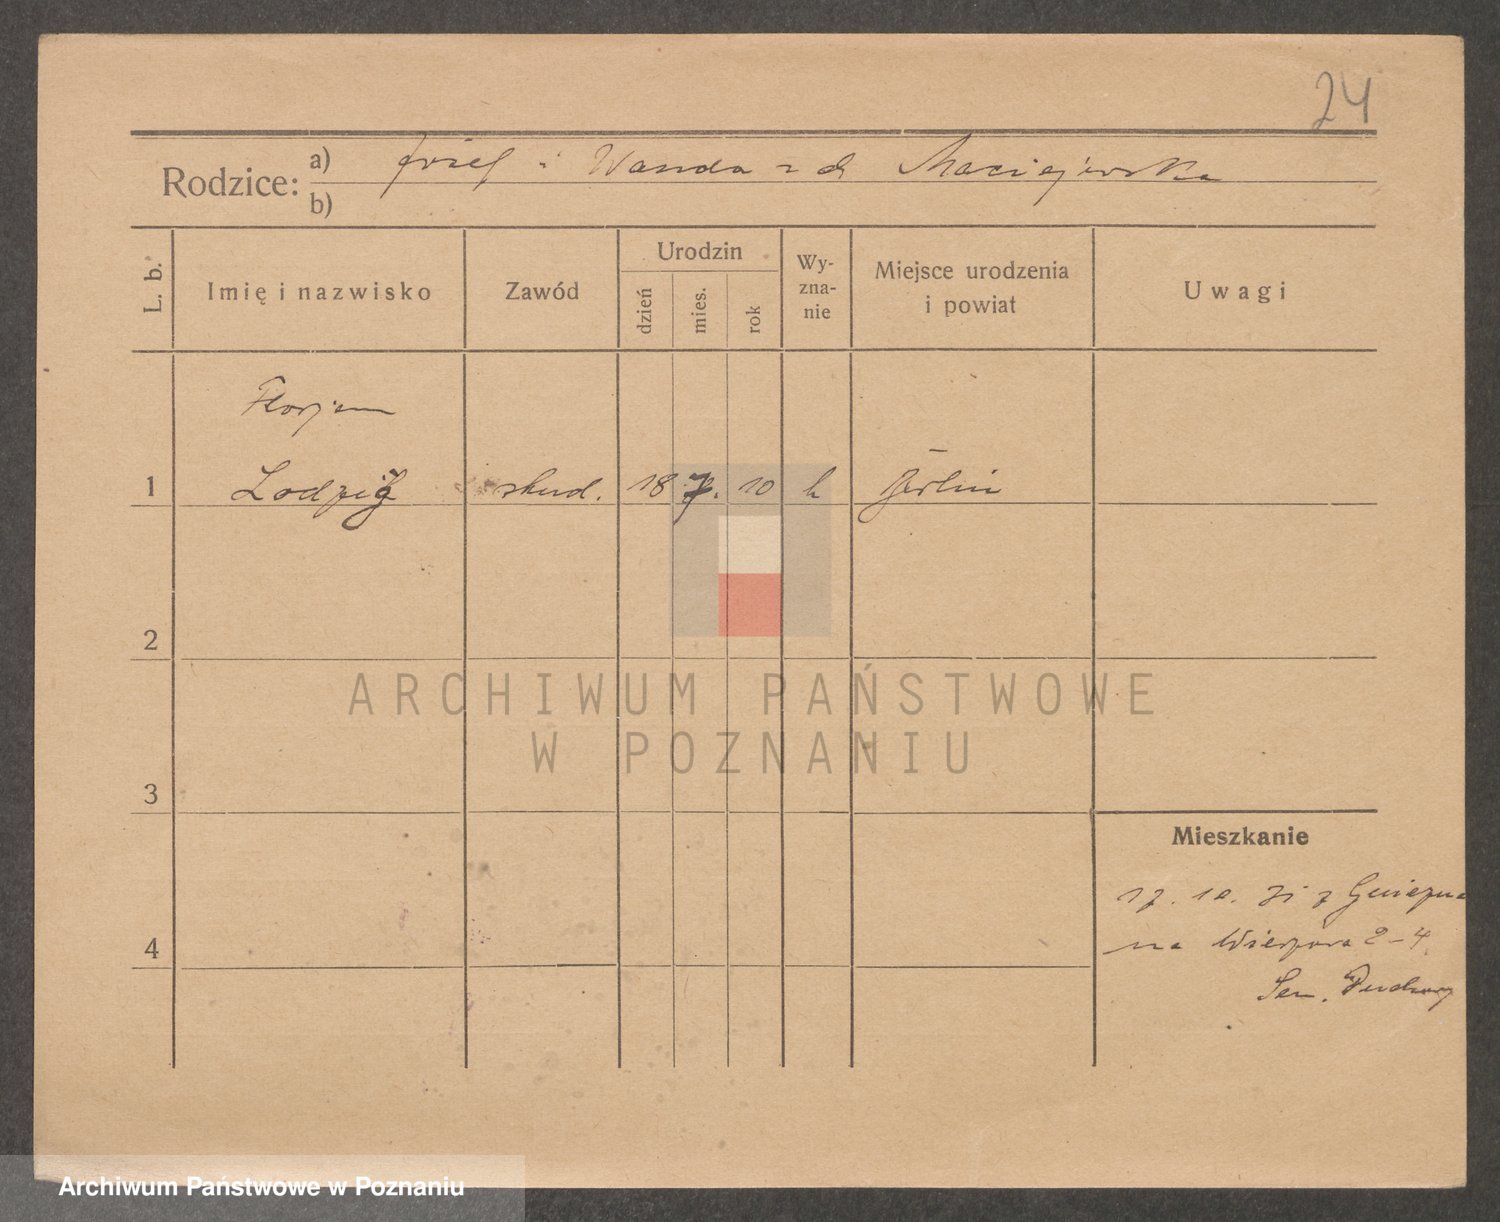 24
Rodzice:
a) Józef i Wanda z d. Maciejewska
b)
L. b.
Imię i nazwisko
Zawód
Urodzin
dzień
mies.
rok
Wy-
zna-
nie
Miejsce urodzenia
i powiat
Uwagi
Florjan
1 stud. 18 7. 10 k Berlin
2
ARCHIWUM PAŃSTWOWE
W POZNANIU
3
Mieszkanie
17. 10. 31 z Gniezna
4 na Wieżowa 2-4
Sem. Duchowy
Archiwum Państwowe w Poznaniu